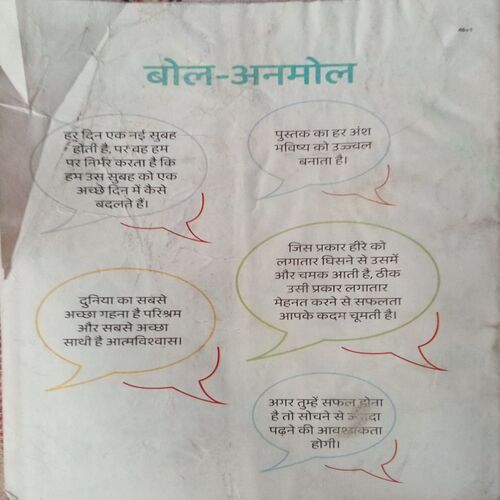 बोल-अनमोल
हर दिन एक नई सुबह
होती है, पर वह हम
पर निर्भर करता है कि
हम उस सुबह को एक
अच्छे दिन में कैसे
बदलते हैं।
पुस्तक का हर अंश
भविष्य को उज्ज्वल
बनाता है।
जिस प्रकार हीरे को
लगातार घिसने से उसमें
और चमक आती है, ठीक
उसी प्रकार लगातार
मेहनत करने से सफलता
आपके कदम चूमती है।
दुनिया का सबसे
अच्छा गहना है परिश्रम
और सबसे अच्छा
साथी है आत्मविश्वास।
अगर तुम्हें सफल होना
है तो सोचने से
पढ़ने की आवश्यकता
होगी।